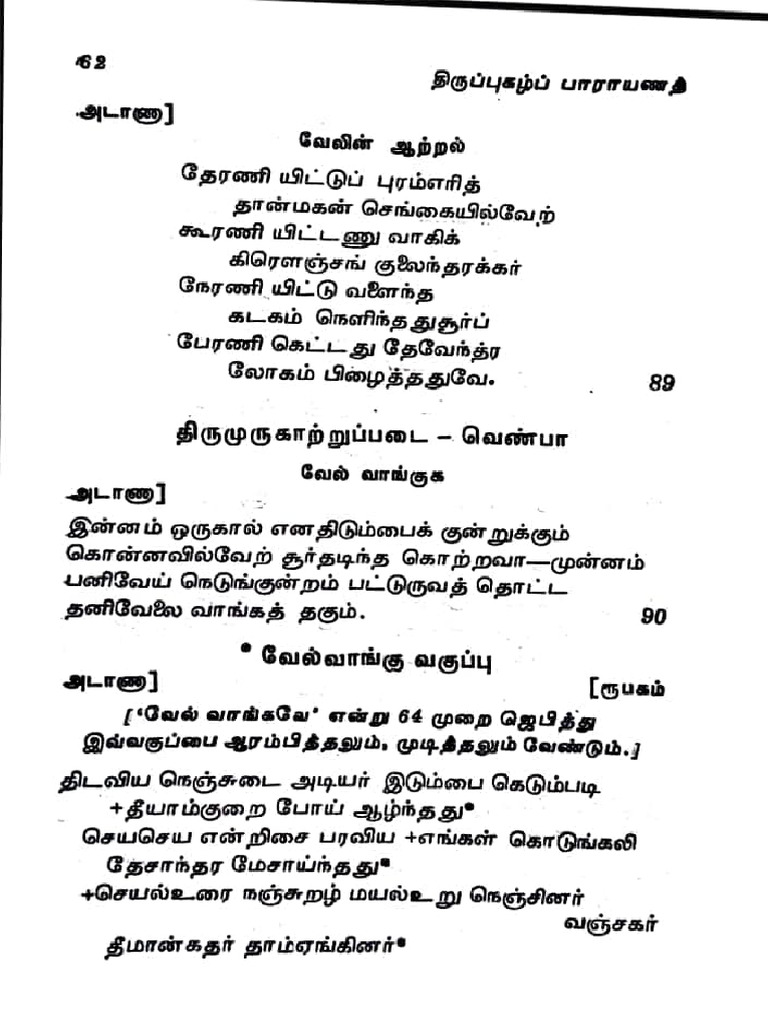 62
திருப்புகழ்ப் பாராயணத்
அடாணா]
வேலின் ஆற்றல்
தேரணி யிட்டுப் புரம்எரித்
தான்மகன் செங்கையில்வேற்
கூரணி யிட்டணு வாகிக்
கிரௌஞ்சங் குலைந்தரக்கர்
நேரணி யிட்டு வளைந்த
கடகம் நெளிந்ததுசூர்ப்
பேரணி கெட்டது தேவேந்த்ர
லோகம் பிழைத்ததுவே. 89
திருமுருகாற்றுப்படை – வெண்பா
வேல் வாங்குக
அடாணா]
இன்னம் ஒருகால் எனதிடும்பைக் குன்றுக்கும்
கொன்னவில்வேற் சூர்தடிந்த கொற்றவா—முன்னம்
பனிவேய் நெடுங்குன்றம் பட்டுருவத் தொட்ட
தனிவேலை வாங்கத் தகும். 90
* வேல்வாங்கு வகுப்பு
அடாணா] [ரூபகம்
[‘வேல் வாங்கவே’ என்று 64 முறை ஜெபித்து
இவ்வகுப்பை ஆரம்பித்தலும், முடித்தலும் வேண்டும்.]
திடவிய நெஞ்சுடை அடியர் இடும்பை கெடும்படி
+தீயாம்குறை போய் ஆழ்ந்தது*
செயசெய என்றிசை பரவிய +எங்கள் கொடுங்கலி
தேசாந்தர மேசாய்ந்தது*
+செயல்உரை நஞ்சுறழ் மயல்உறு நெஞ்சினர்
வஞ்சகர்
தீமான்கதர் தாம்ஏங்கினர்*